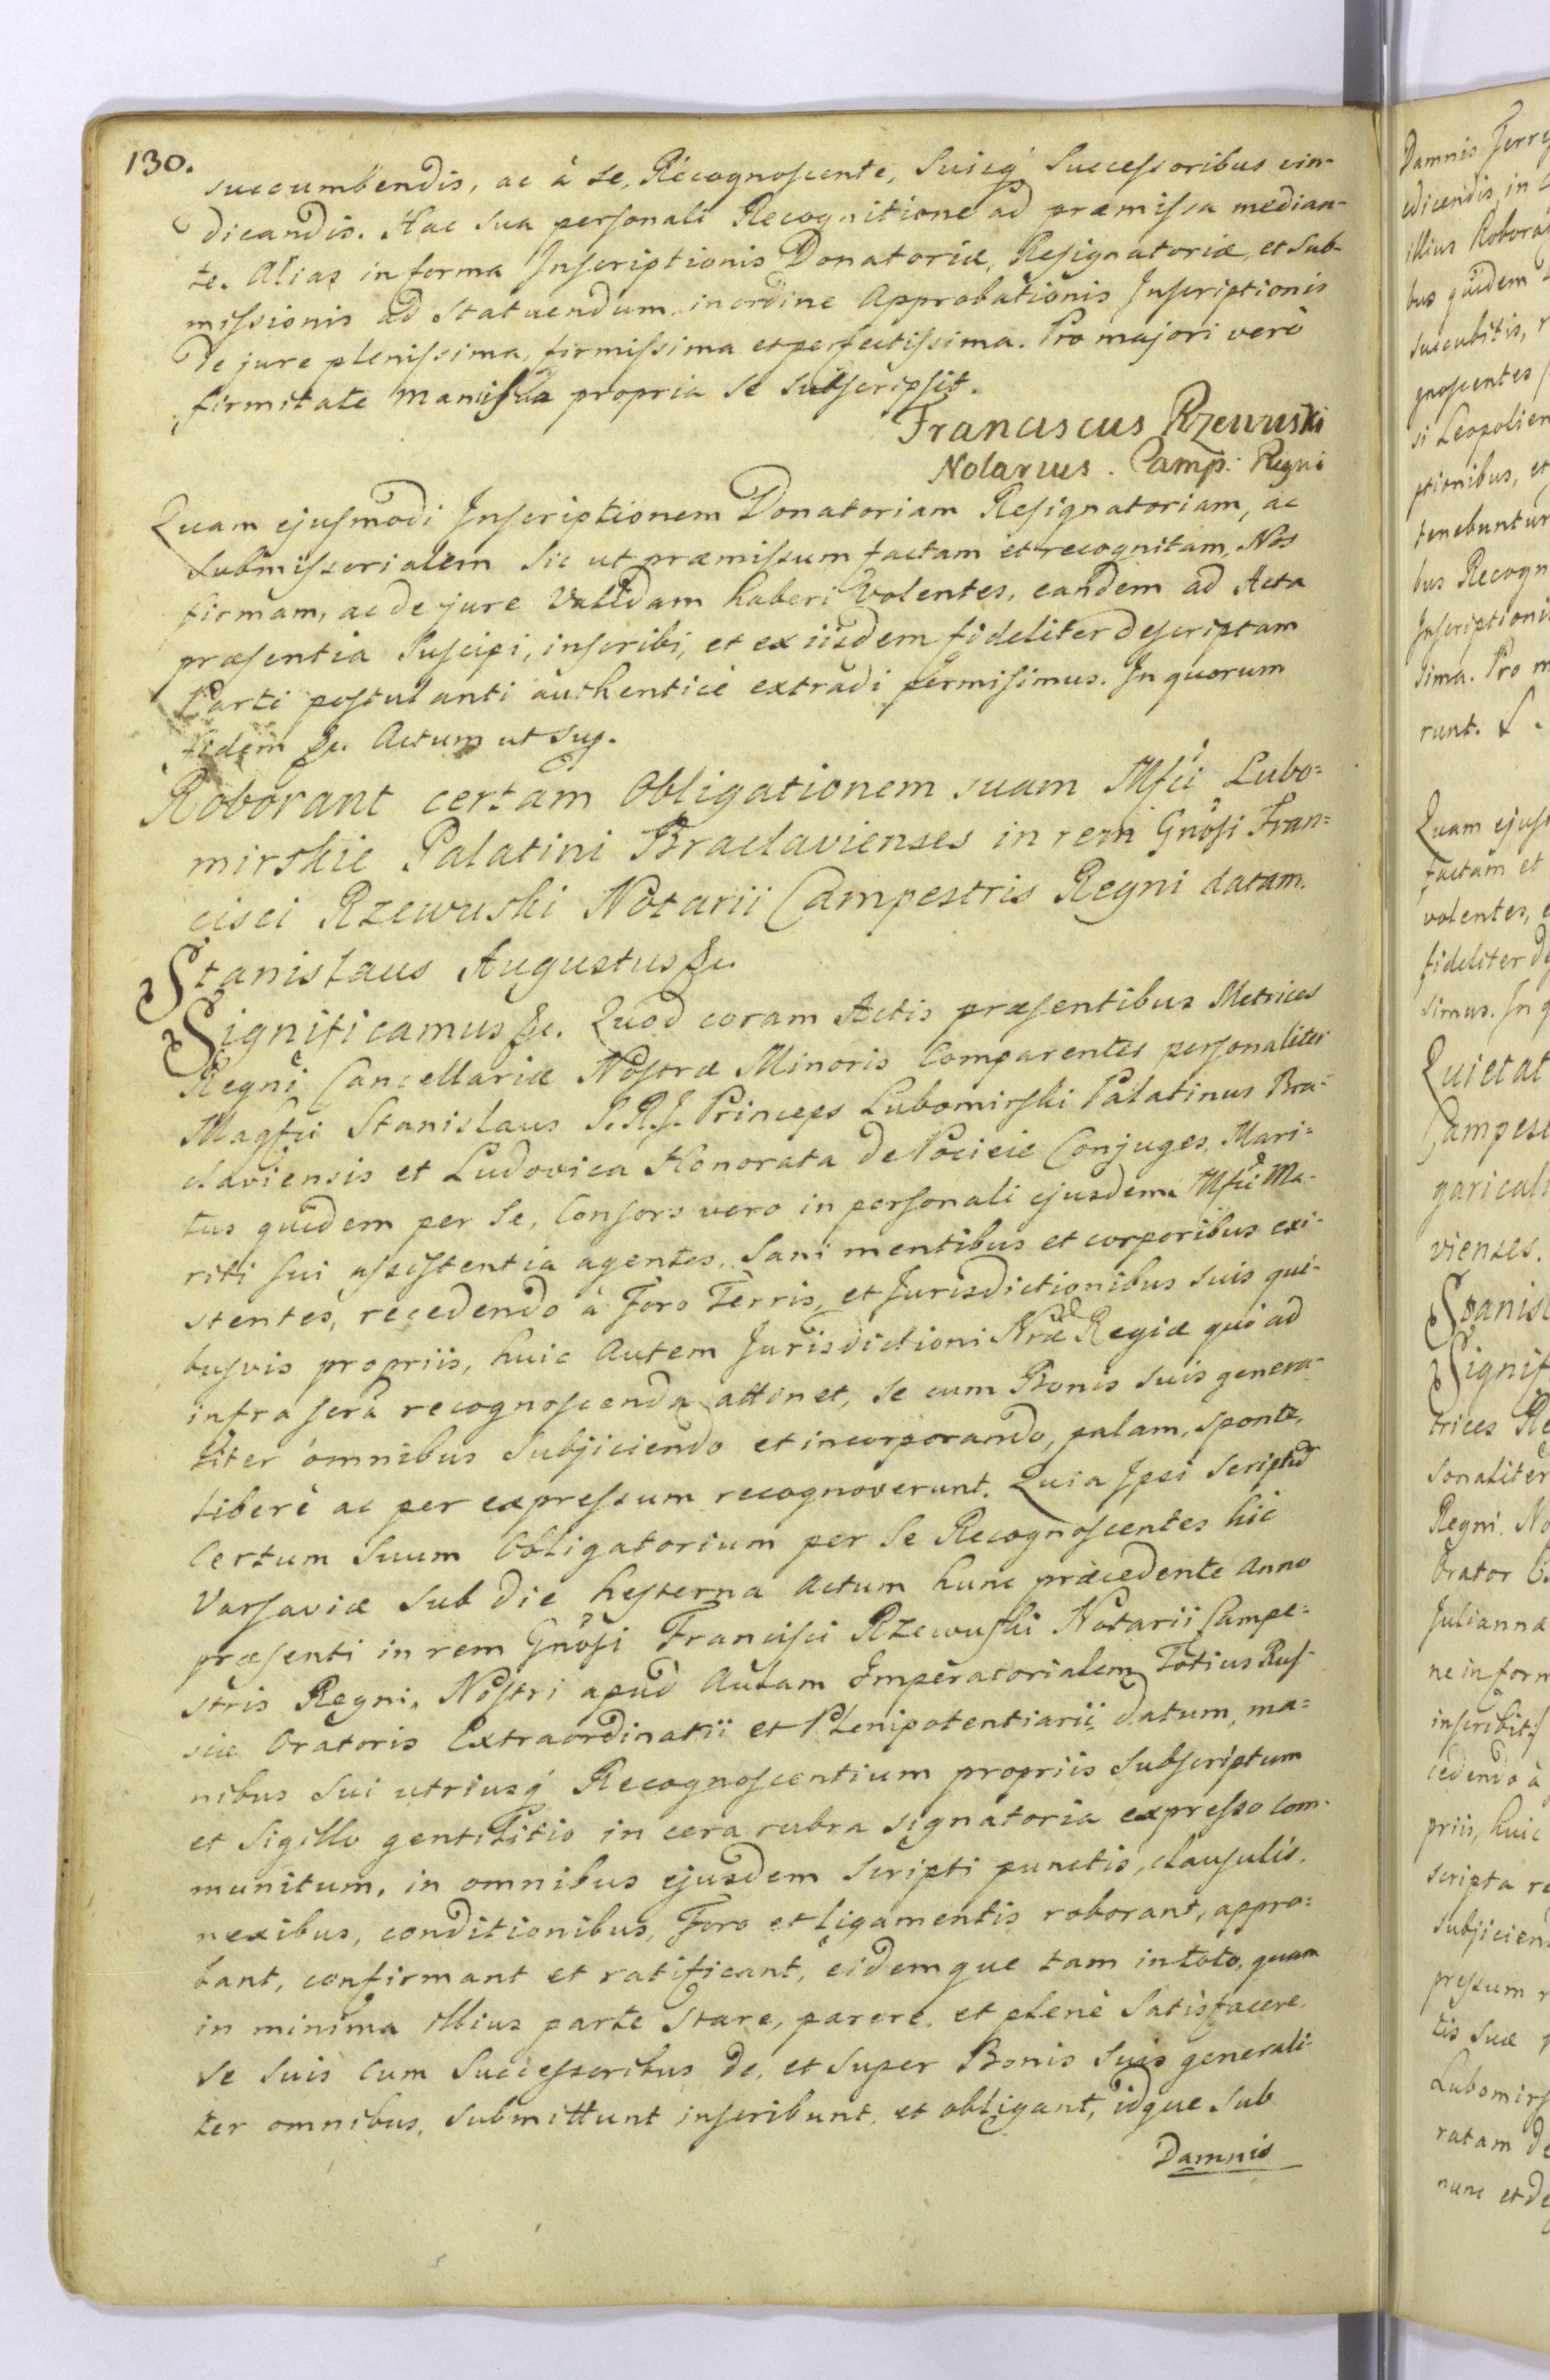 130.
succumbendis, ac à se, Recognoscente, Suisq́ Successoribus vin-
dicandis. Hac sua personali Recognitione ad præmissa median-
te. Alias in forma Inscriptionis Donatoriæ, Resignatoriæ, et Sub-
missionis ad statuendum, in ordine Approbationis Inscriptionis
de jure plenissima, firmissima et perfectissima. Pro majori verò
firmitate Manu sua propria se subscripsit.
Franciscus Rzewuski
Notarius. Camp: Regni
Quam ejusmodi Inscriptionem Donatoriam Resignatoriam, ac
Submissorialem sic ut præmissum factam et recognitam, Nos
firmam, ac de jure Validam haberi Volentes, eandem ad Acta
præsentia Suscipi, inscribi, et ex iisdem fideliter descriptam
Parti postulanti authenticè extradi permisimus. In quorum
fidem &c. Actum ut sup.
Roborant certam Obligationem suam Mfci Lubo=
mirskie Palatini Braclavienses in rem Gnosi Fran=
cisci Rzewuski Notarii Campestris Regni datam.
Stanislaus Augustus &c.
Significamus &c. Quod coram Actis præsentibus Metrices
Regni Cancellariæ Nostræ Minoris Comparentes personaliter
Magfci Stanislaus S. R. J. Princeps Lubomirski Palatinus Bra-
claviensis et Ludovica Honorata de Pocieie Conjuges, Mari=
tus quidem per Se, Consors vero in personali ejusdem Mfci Ma-
riti sui assistentia agentes, Sani mentibus et corporibus exi-
stentes, recedendo à Foro Terris, et Jurisdictionibus suis qui-
busvis propriis, huic Autem Jurisdictioni Nræ Regiæ quo ad
infra scrã recognoscenda attinet, se cum Bonis suis genera-
liter omnibus Subjiciendo et incorporando, palam, sponte,
liberè ac per expressum recognoverunt. Quia Ipsi Scriptum
Certum Suum Obligatorium per Se Recognoscentes hic
Varsaviæ Sub die hesterna Actum hunc præcedente Anno
præsenti in rem Gnosi Francisci Rzewuski Notarii Campe=
stris Regni, Nostri apud Aulam Imperatorialem Totius Rus-
siæ Oratoris Extraordinarii et Plenipotentiarii datum, ma=
nibus Sui utriusq́ Recognoscentium propriis Subscriptum
et Sigillo gentilitio in cera rubra signatoria expresso com-
munitum, in omnibus ejusdem Scripti punctis, clausulis,
nexibus, conditionibus, Foro et ligamentis roborant, appro=
bant, confirmant et ratificant, eidemque tam in toto, quam
in minima illius parte Stare, parere, et plenè Satisfacere,
se Suis Cum Successoribus de, et Super Bonis Suis generali-
ter omnibus, Submittunt inscribunt, et obligant, idque Sub
Damnis
Damnis Terr
edicendis, in
illius Robora
bus quidem
succubitis,
gnoscentes
si Leopolien
ptionibus, et
tenebuntur
bus Recogn
Inscriptioni
sima. Pro m
runt.
Quam ejus
factam et
volentes, e
fideliter de
simus. In q
Quietat
Campest
garicali
vienses.
Stanisl
Signif
trices Re
sonaliter
Regni. No
Orator
Juliannæ
ne in form
inscribit
cedendo à
priis, huic
scripta re
subjicien
pressum r
tis suæ
Lubomirs
ratam de
nunc et de